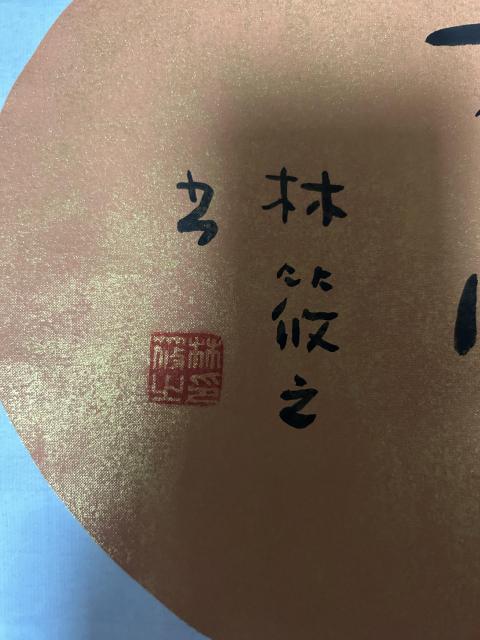 林筱之
书